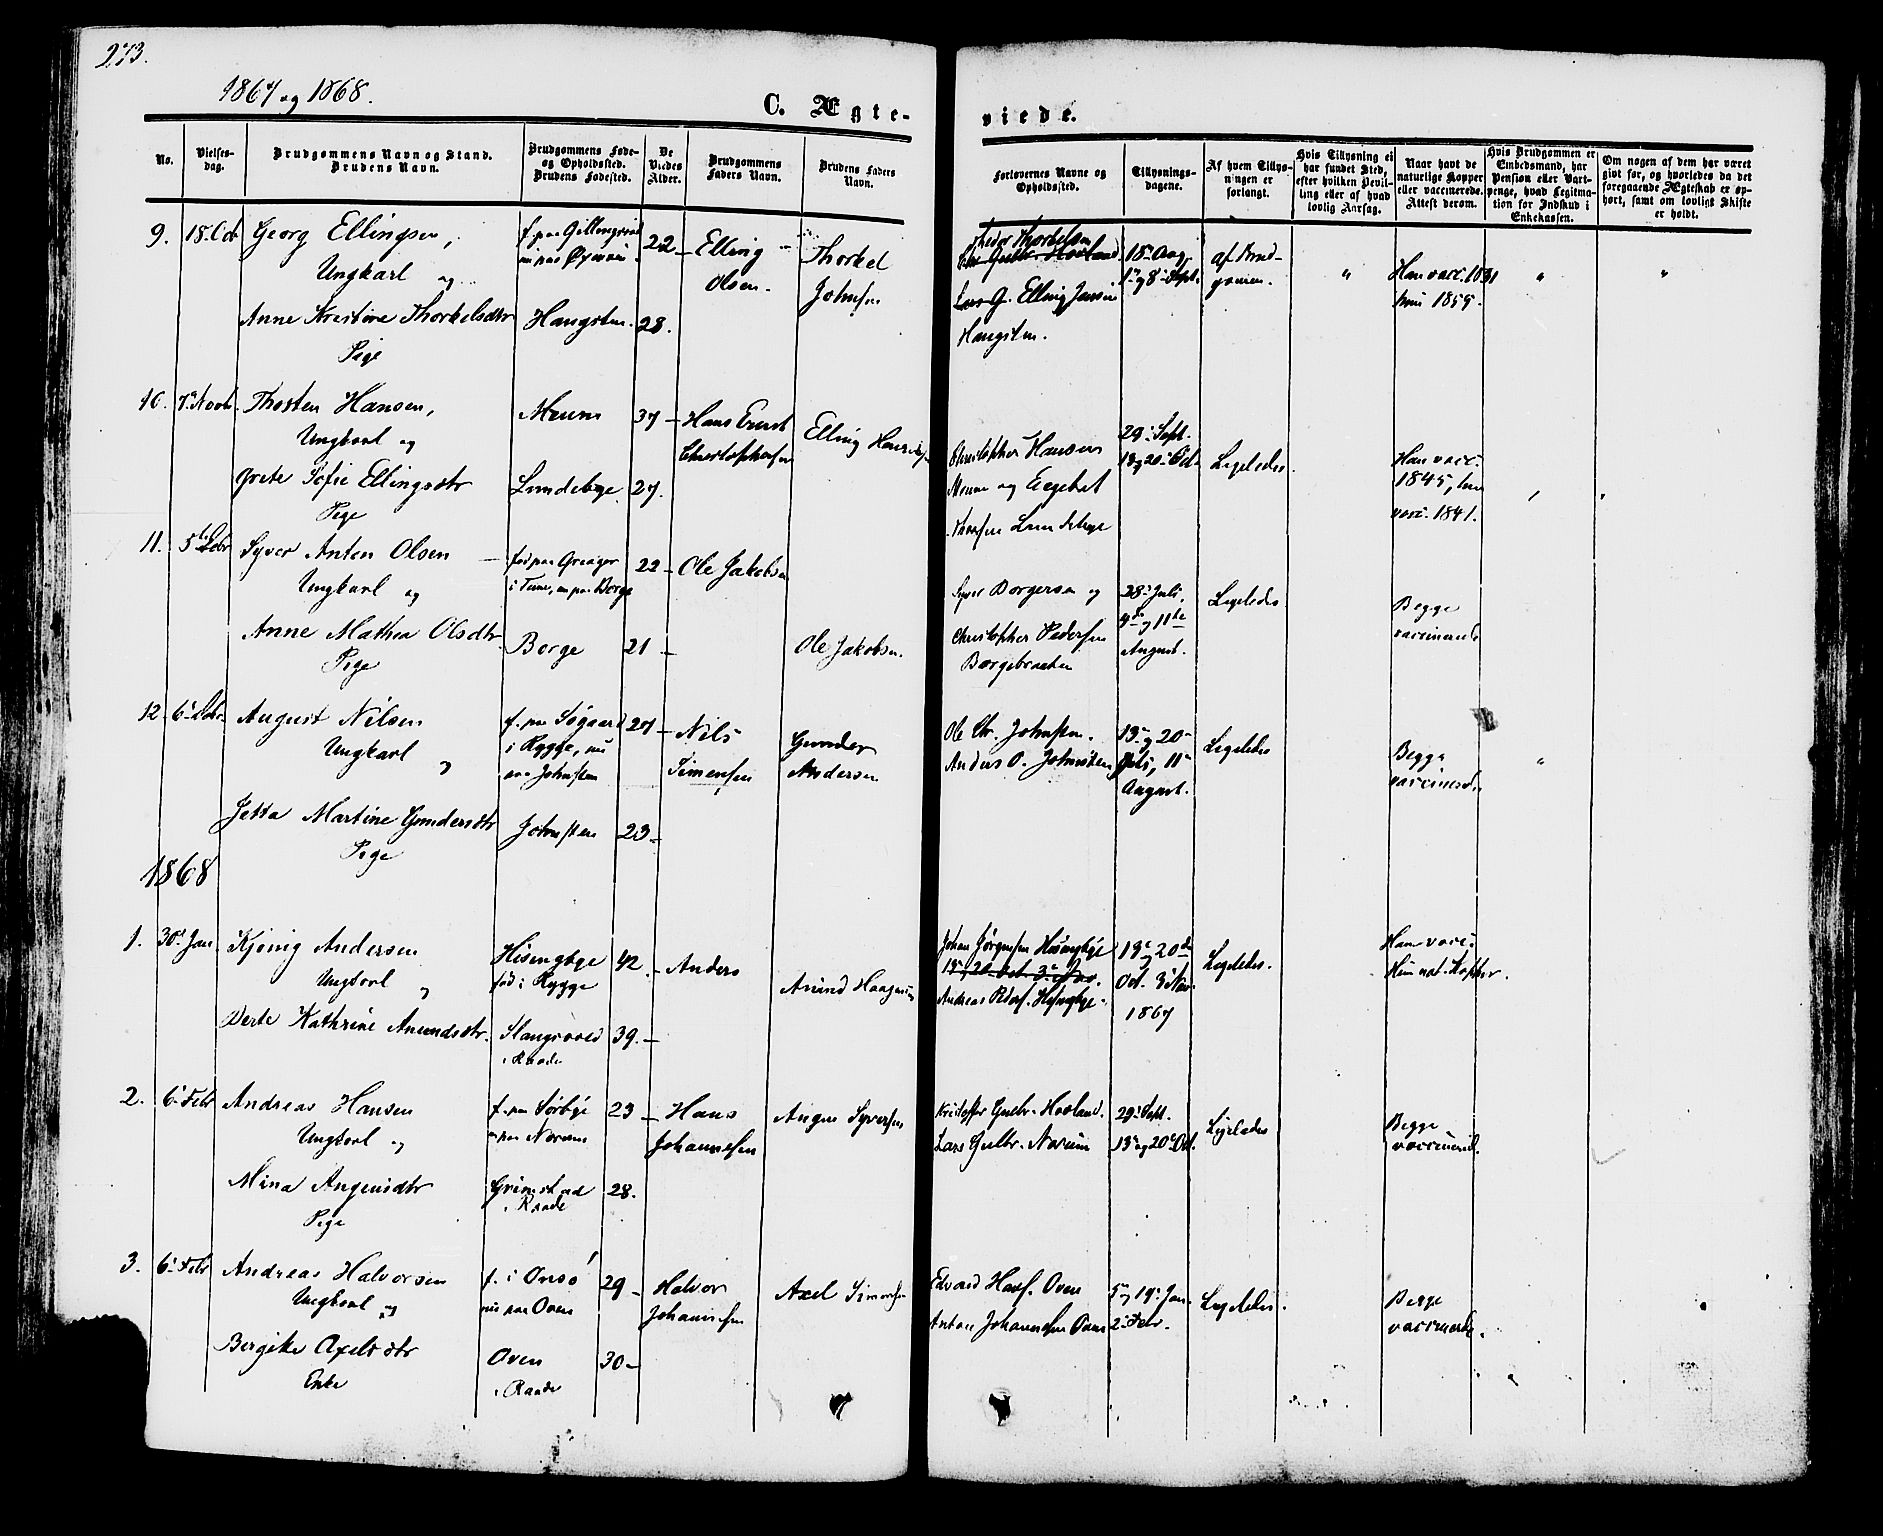 273.
1867 og 1868.
C. Ægte-
viede.
No.
Vielses-
dag.
Brudgommens Navn og Stand.
Brudens Navn.
Brudgommens Føde-
og Opholdssted.
Brudens Fødested.
De
Viedes
Alder.
Brudgommens
Faders Navn.
Brudens Faders
Navn.
Forlovernes Navne og
Opholdssted.
Tillysnings-
dagene.
Af hvem Tillys-
ningen er
forlangt.
Hvis Tillysning ei
har fundet Sted,
efter hvilken Bevil-
ling eller af hvad
lovlig Aarsag.
Naar havt de
naturlige Kopper
eller vaccinerede.
Attest derom.
Hvis Brudgommen er
Embedsmand, har
Pension eller Vart-
penge, hvad Legitima-
tion for Indskud i
Enkekassen.
Om nogen af dem har været
gift før, og hvorledes da det
foregaaende Ægteskab er op-
hørt, samt om lovligt Skifte
er holdt.
9. 18. Oct. Georg Ellingsen,
Ungkarl og
Anne Kristine Thorkelsdtr
Pige
Haugsten.
22 -
28.
Elling
Olsen.
Thorkel
Johnsen
Thorkelsen
Lars G. Elling Jensen
Haugsten.
18. Aug,
1. og 8. Sept.
af Brud-
gommen.
"
Han vacc. 1831
hun 1859.
"
"
10. 7. Novb. Thosten Hansen,
Ungkarl og
Grete Sofie Ellingsdtr
Pige
Meum
Lundebye
37 -
27.
Hans Ernst
Christophersen
Elling Hansen
Christopher Hansen
Meum og Engebret
Thorsen Lundebye
29. Sept.
13 og 20. Oct.
Ligeledes.
Han vacc.
1845, hun
vacc. 1841.
11. 5. Decbr Syver Anton Olsen
Ungkarl og
Anne Mathea Olsdtr.
Pige
født paa Greager
i Tune, nu paa Borge
Borge
22 -
21 -
Ole Jakobsen
Ole Jakobsen.
Syver Borgersen og
Christopher Pedersen
Borgebraaten
28. Juli,
4de og 11te
August.
Ligeledes
Begge
vaccinerede
12. 6. Decbr. August Nilsen
Ungkarl og
Jetta Martine Gundersdtr
Pige
f. paa Søgaard
i Rygge, nu
paa Johnsten
Johnsten
27 -
23 -
Nils
Simensen
Gunder
Andersen
Ole Chr. Johnsten.
Anders O. Johnsten
13. og 20.
Juli, 11.
August.
Ligeledes
Begge
vaccinered.
"
1868
1. 30. Jan. Kjønig Andersen
Ungkarl og
Berte Kathrine Anundsdtr.
Hisengbye
fød i Rygge
Slangsvold
i Raade
42. -
39. -
Anders
Anund Haagensen
Johan Jørgensen Hisengbye
13. og 20. Oct. 3. Nov.
Andreas Peders. Hisengbye.
13. og 20de
Oct. 3. Nov.
1867
Ligeledes.
Han vacc.
Hun nat. Kopper.
2. 6. Febr Andreas Hansen
Ungkarl og
Mina Angensdtr
Pige
f. paa Sørbye
nu paa Norum
Grimstad
i Raade
23 -
28.
Hans
Johannesen
Angen Syversen
Kristoffer Gulbr. Hovland.
Lars Gulbr. Norum
29. Sept.
13. og 20. Oct.
Ligeledes
Begge
vaccinered.
3. 6. Febr Andreas Halvorsen
Ungkarl og
Bergitte Axelsdtr
Enke
f. i Onsø
nu paa Oven
Oven
i Raade
29 -
30 -
Halvor
Johannesen
Axel Simonsen
Edvard Hansen Oven
Anton Johannesen Oven
5. og 19. Jan.
2. Febr.
Ligeledes.
Begge
vaccinerede.